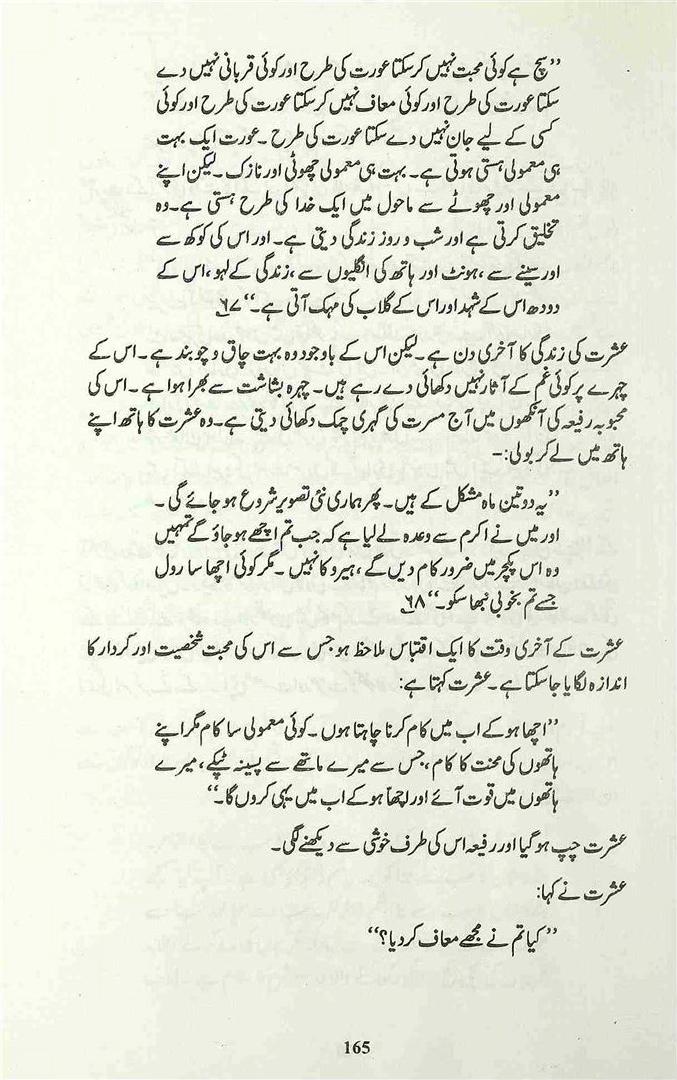 ”سچ ہے کوئی محبت نہیں کرسکتا عورت کی طرح اور کوئی قربانی نہیں دے
سکتا عورت کی طرح اور کوئی معاف نہیں کرسکتا عورت کی طرح اور کوئی
کسی کے لیے جان نہیں دے سکتا عورت کی طرح۔ عورت ایک بہت
ہی معمولی ہستی ہوتی ہے۔ بہت ہی معمولی چھوٹی اور نازک۔ لیکن اپنے
معمولی اور چھوٹے سے ماحول میں ایک خدا کی طرح ہستی ہے۔ وہ
تخلیق کرتی ہے اور شب و روز زندگی دیتی ہے۔ اور اس کی کوکھ سے
اور سینے سے، ہونٹ اور ہاتھ کی انگلیوں سے، زندگی کے لہو، اس کے
دودھ اس کے شہد اور اس کے گلاب کی مہک آتی ہے۔“ ۶۷
عشرت کی زندگی کا آخری دن ہے۔ لیکن اس کے باوجود وہ بہت چاق و چوبند ہے۔ اس کے
چہرے پر کوئی غم کے آثار نہیں دکھائی دے رہے ہیں۔ چہرہ بشاشت سے بھرا ہوا ہے۔ اس کی
محبوبہ رفیعہ کی آنکھوں میں آج مسرت کی گہری چمک دکھائی دیتی ہے۔ وہ عشرت کا ہاتھ اپنے
ہاتھ میں لے کر بولی:۔
”یہ دو تین ماہ مشکل کے ہیں۔ پھر ہماری نئی تصویر شروع ہو جائے گی۔
اور میں نے اکرم سے وعدہ لے لیا ہے کہ جب تم اچھے ہو جاؤ گے تمہیں
وہ اس پکچر میں ضرور کام دیں گے، ہیرو کا نہیں۔ مگر کوئی اچھا سا رول
جسے تم بخوبی نبھا سکو۔“ ۶۸
عشرت کے آخری وقت کا ایک اقتباس ملاحظہ ہو جس سے اس کی محبت شخصیت اور کردار کا
اندازہ لگایا جاسکتا ہے۔ عشرت کہتا ہے:
”اچھا ہو کے اب میں کام کرنا چاہتا ہوں۔ کوئی معمولی سا کام مگر اپنے
ہاتھوں کی محنت کا کام، جس سے میرے ماتھے سے پسینہ ٹپکے، میرے
ہاتھوں میں قوت آئے اور اچھا ہو کے اب میں یہی کروں گا۔“
عشرت چپ ہوگیا اور رفیعہ اس کی طرف خوشی سے دیکھنے لگی۔
عشرت نے کہا:
”کیا تم نے مجھے معاف کردیا؟“
165